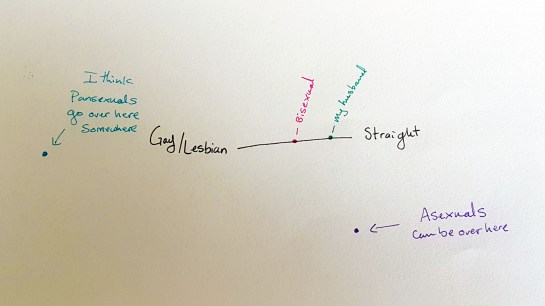 I think
Pansexuals
go over here
Somewhere
Bisexual
my husband
Gay/Lesbian
Straight
Asexuals
can be over here